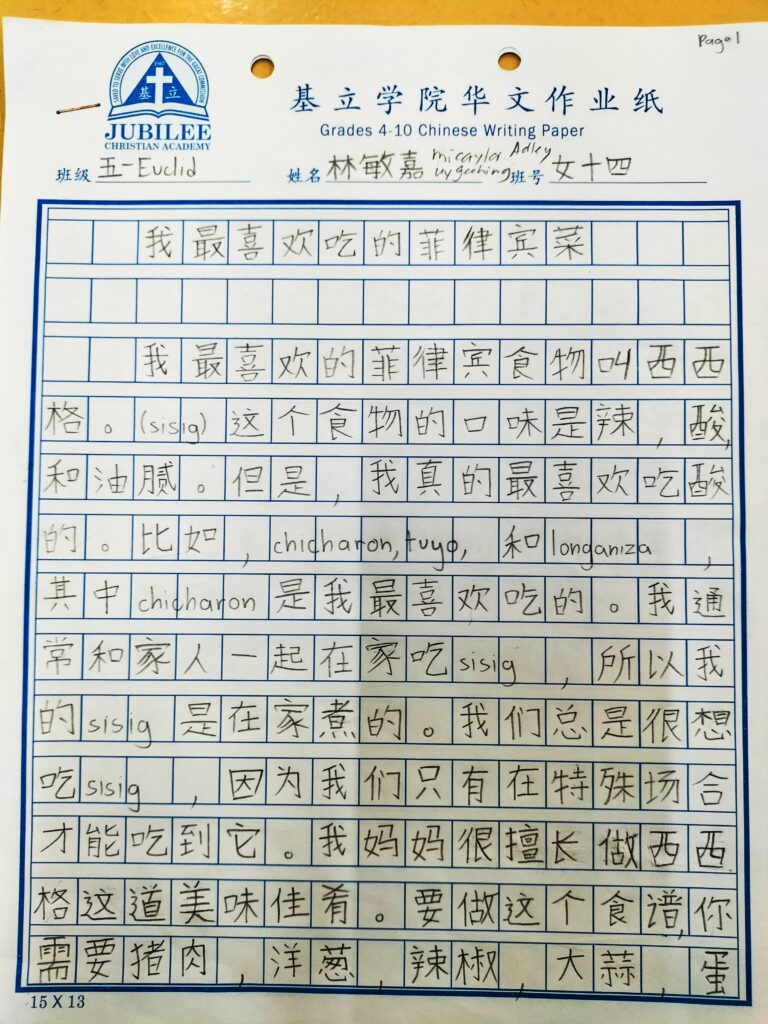 Page 1
SAVED TO SERVE WITH LOVE AND EXCELLENCE FOR THE GREAT COMMISSION
1967
基立
JUBILEE
CHRISTIAN ACADEMY
基立学院华文作业纸
Grades 4-10 Chinese Writing Paper
班级 五-Euclid 姓名 林敏嘉 micayla Adley uy 班号 女十四
我最喜欢吃的菲律宾菜
我最喜欢的菲律宾食物叫西西
格。(sisig)这个食物的口味是辣,酸,
和油腻。但是,我真的最喜欢吃酸
的。比如,chicharon,tuyo,和longaniza,
其中chicharon是我最喜欢吃的。我通
常和家人一起在家吃sisig,所以我
的sisig是在家煮的。我们总是很想
吃sisig,因为我们只有在特殊场合
才能吃到它。我妈妈很擅长做西西
格这道美味佳肴。要做这个食谱,你
需要猪肉,洋葱,辣椒,大蒜,蛋
15 X 13